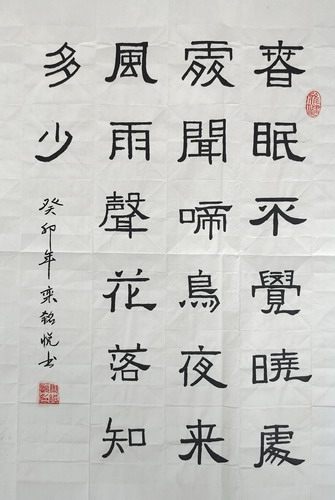 春眠不覺曉處
處聞啼鳥夜来
風雨聲花落知
多少
癸卯年栾銘悦书